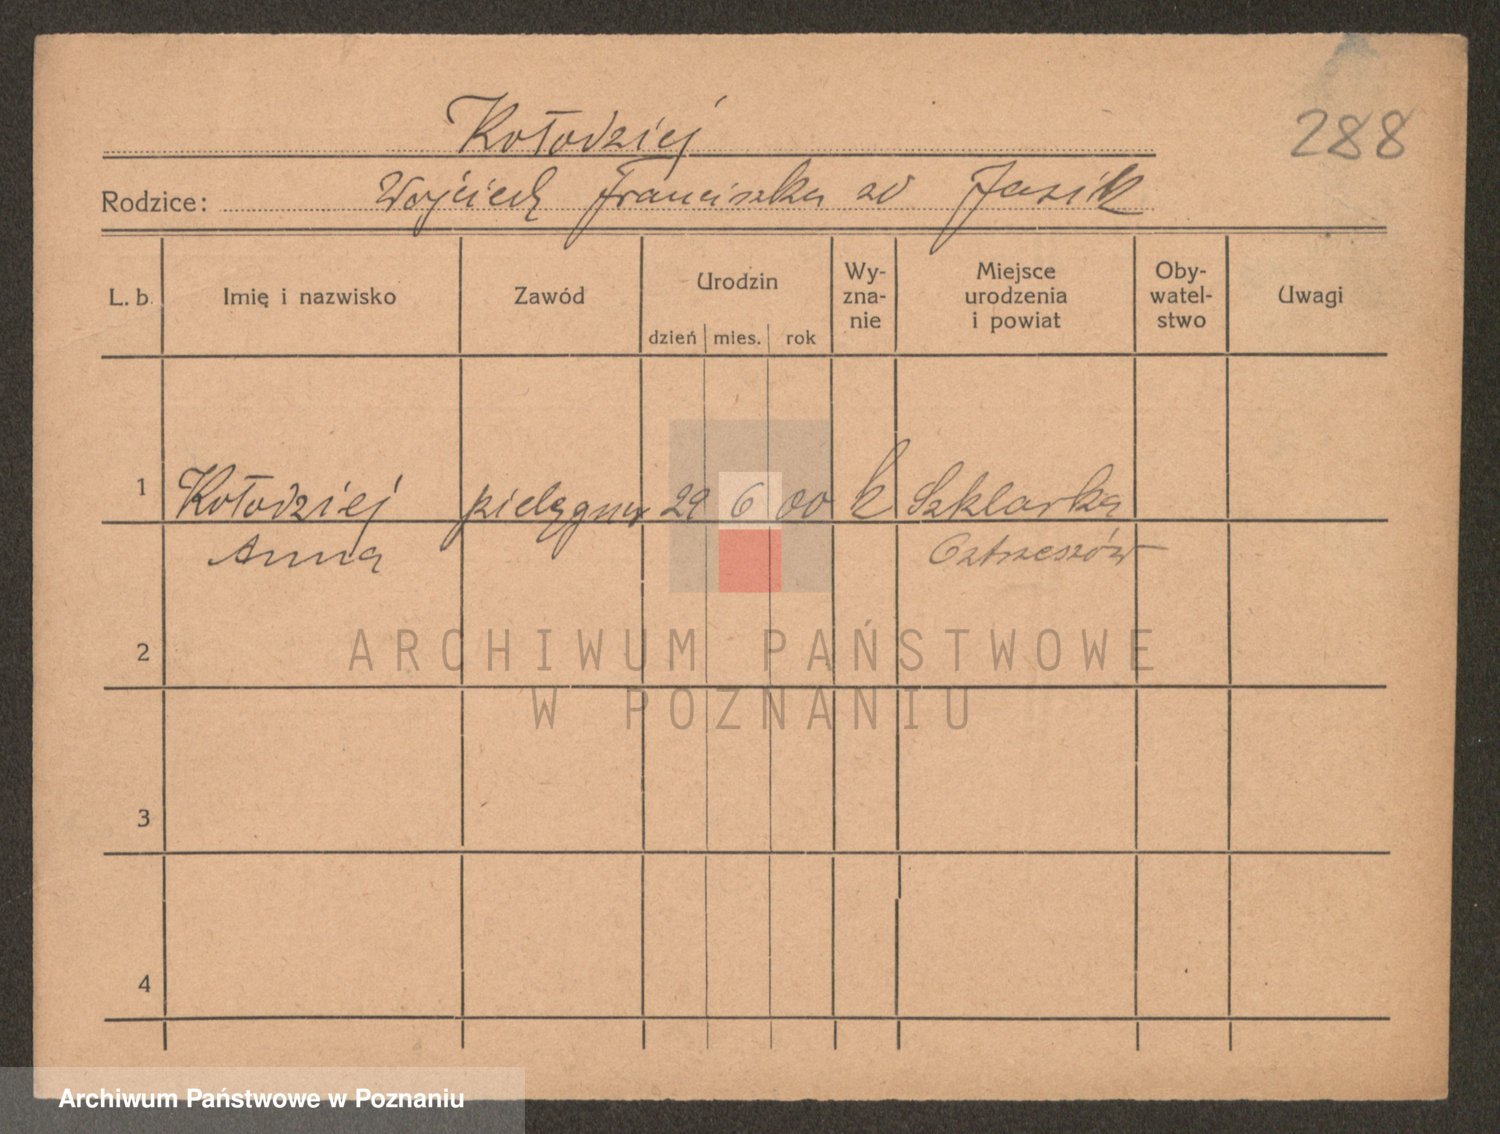 288
Kołodziej
Rodzice: Wojciech Franciszka zd Jasik
L. b. Imię i nazwisko Zawód Urodzin dzień mies. rok Wy-zna-nie Miejsce urodzenia i powiat Oby-watel-stwo Uwagi
1 Kołodziej pielęgniar 29 6 00 k Szklarka
Anna Ostrzeszów
2
ARCHIWUM PAŃSTWOWE
W POZNANIU
3
4
Archiwum Państwowe w Poznaniu